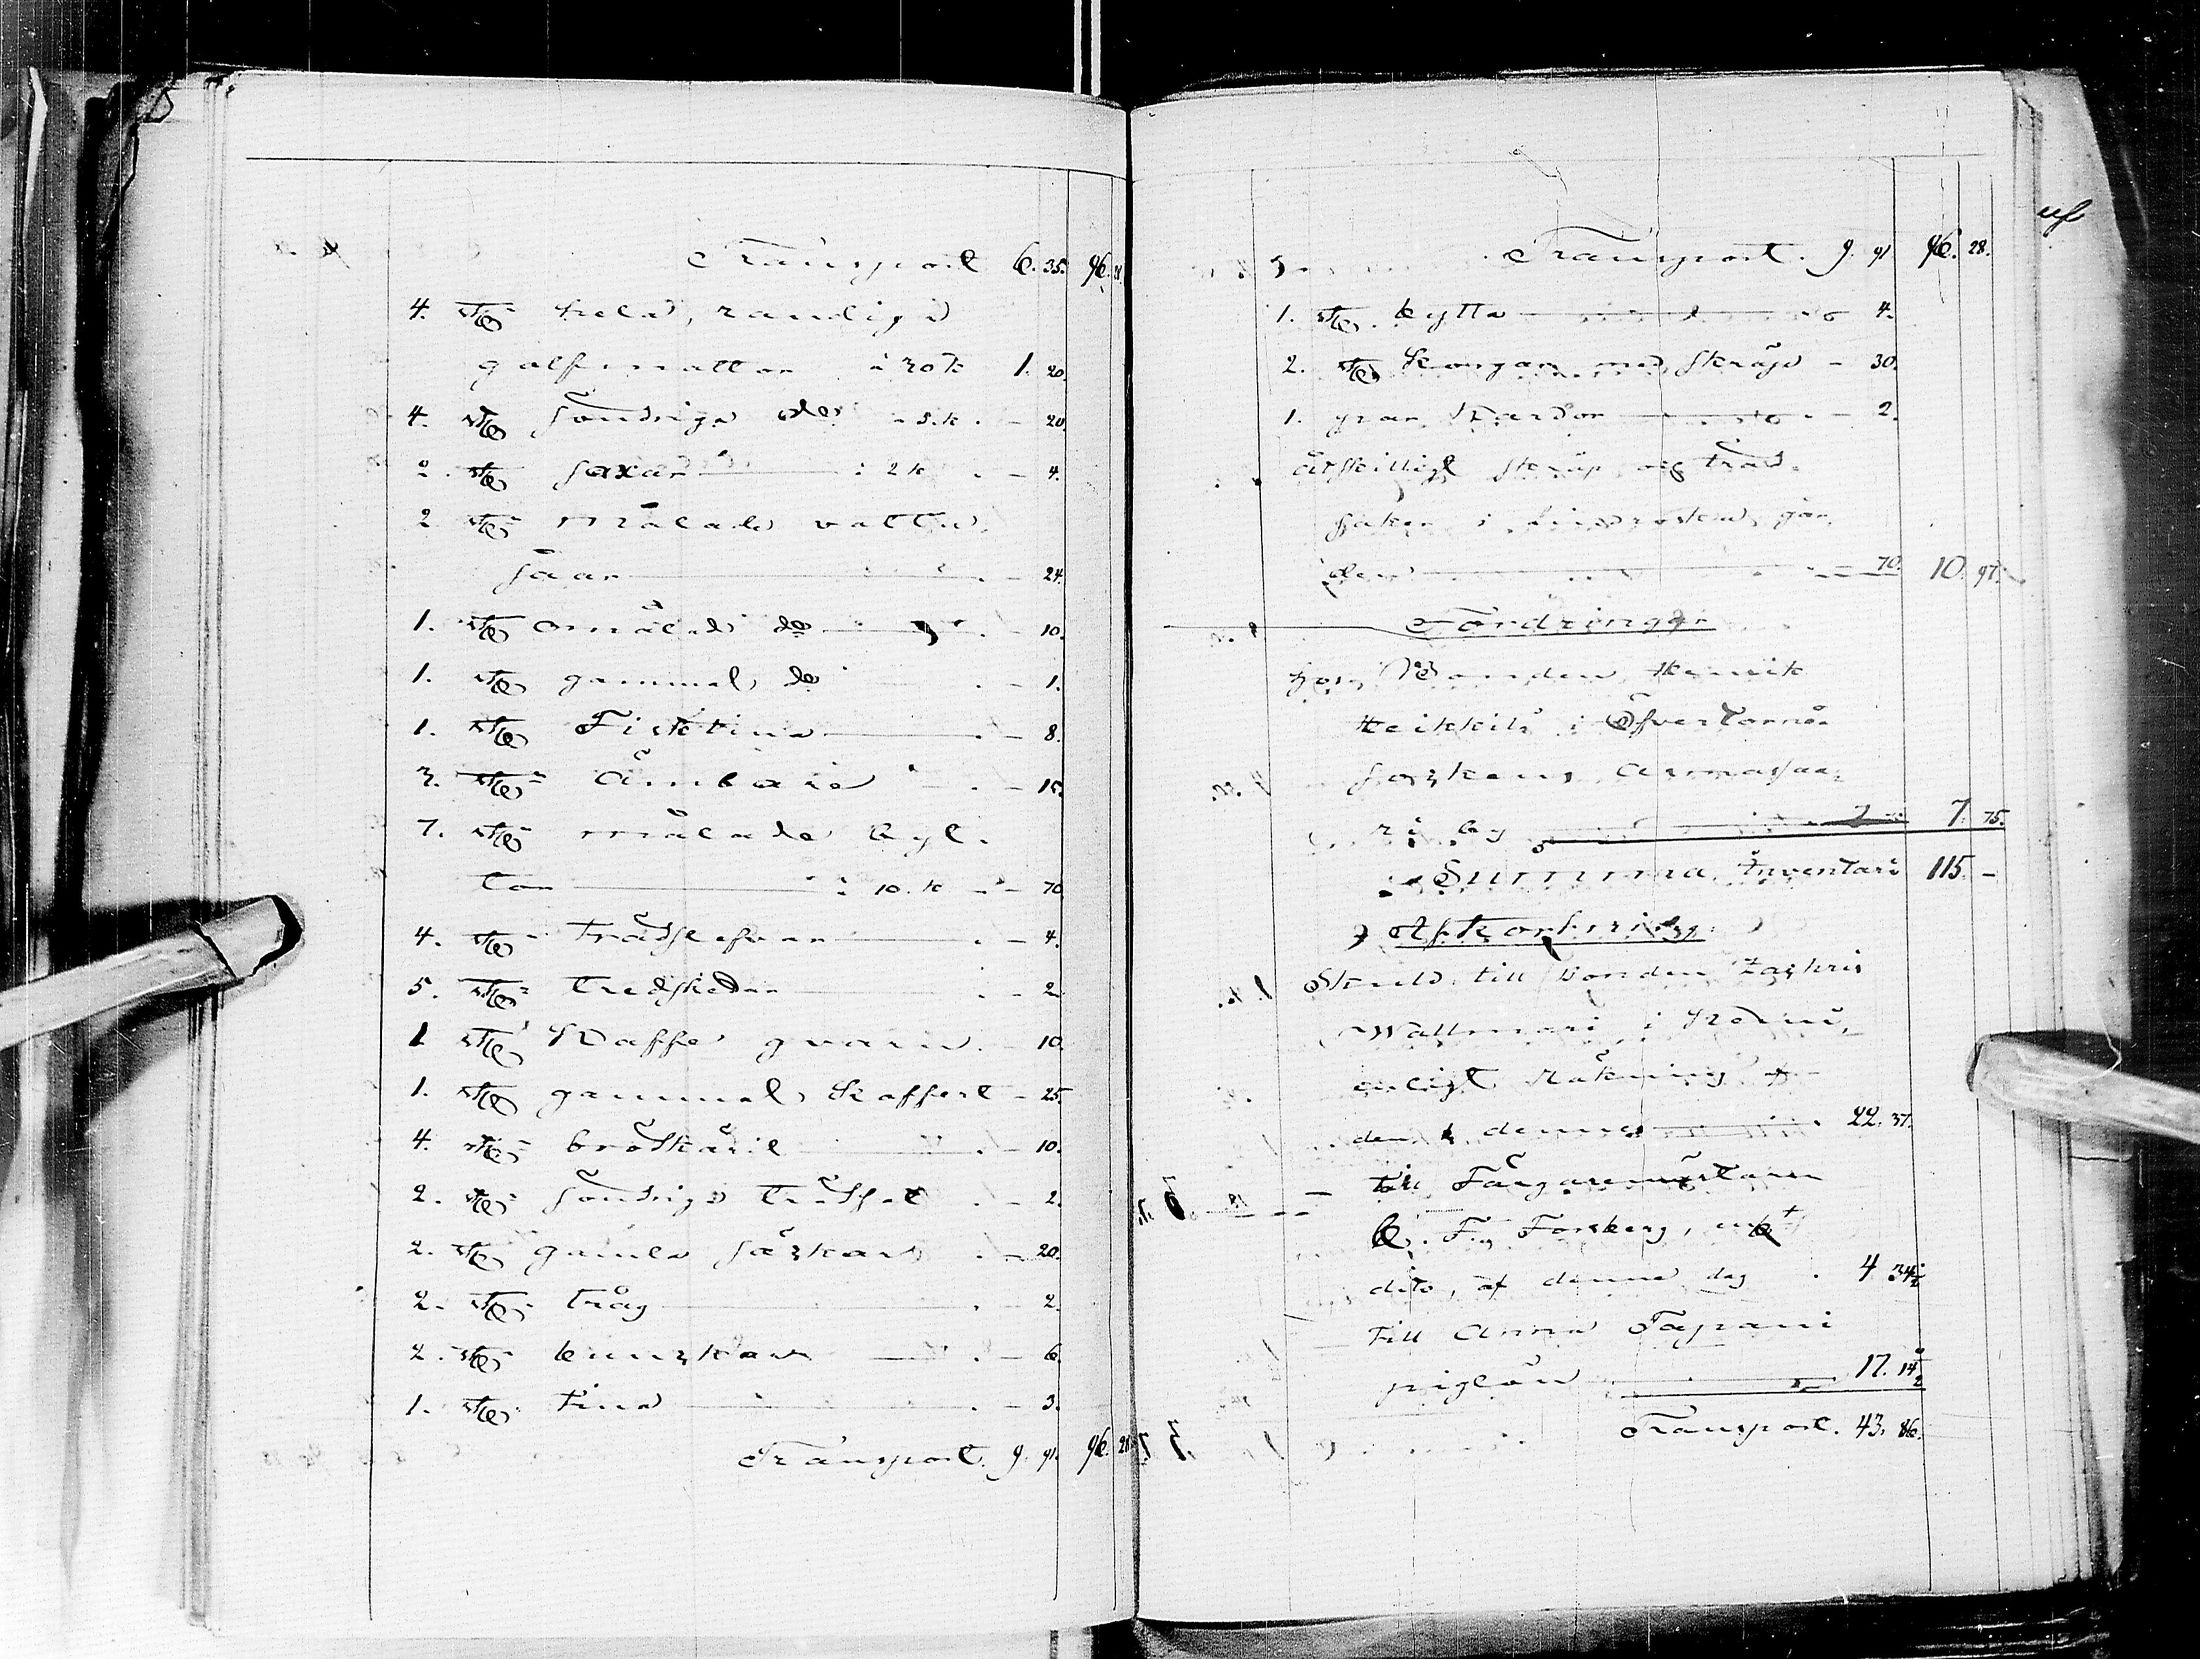 Transport 6. 35. 96. 28.
4. st:r hela, randiga
golfmattor à 30 k 1. 20.
4. st:r söndriga do à 5. k. - 20.
2. st:r saxar à 2 k . - 4.
2 st:r målade vattu
såar . - 24.
1. st. omålad do . - 10.
1. st. gammal do . - 1.
1. st. Fisktina . - 8.
3. st:r Ämbare . - 15.
7. st:r målade byt-
tor à 10. k - 70
4. st:r trädslefvar . - 4.
5. st:r trädskedar . - 2
1 st. Kaffe qvarn. - 10.
1. st. gammal Koffert - 25.
4. st:r brödkäril . - 10.
2. st:r söndriga trädfat . - 2.
2. st:r gamla särkar . - 20.
2. st:r tråg . - 2.
2. st:r bunkar . - 6.
1. st. tina . - 3.
Transport. 9. 91. 96. 28
Transport. 9. 91 96. 28.
1. st. bytta 4.
2. st. Korgar med skräp - 30.
1. par Kardor - 2.
åtskilligt skräp och träd-
saker i går
den 70. 10. 97.
Fordringar
hos Bonden Henrik
Heikkilä i Öfvertorneå
sockens Armassaa-
ri by 7. 75.
Summa Inventari 115. -
Afkortning
Skuld till bonden Zachris
Wallmari i Kemi,
enligt Räkning af
den denne 22. 37.
till Färgaremästaren
C. F. Forsberg, enl.
dito, af denna dag . 4 34½
till Anna Tapani
piglön 17. 14½
Transport. 43. 86.